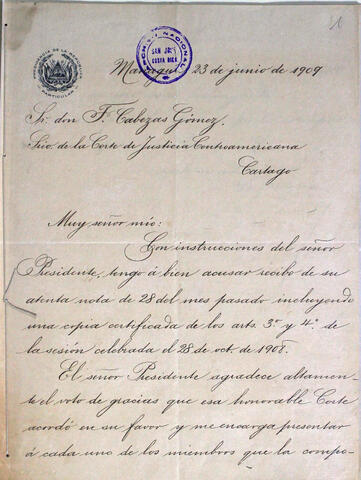 PRESIDENCIA DE LA REPUBLICA
PARTICULAR
ARCHIVO NACIONAL
SAN JOSÉ
COSTA RICA
23 de junio de 1909
Sr. don F. Cabezas Gómez,
Srio. de la Corte de Justicia Centroamericana
Cartago
Muy señor mío:
Con instrucciones del señor
Presidente, tengo á bien acusar recibo de su
atenta nota de 28 del mes pasado incluyendo
una copia certificada de los arts. 3º y 4º de
la sesión celebrada el 28 de oct. de 1908.
El señor Presidente agradece altamen-
te el voto de gracias que esa honorable Corte
acordó en su favor y me encarga presentar
á cada uno de los miembros que la compo-